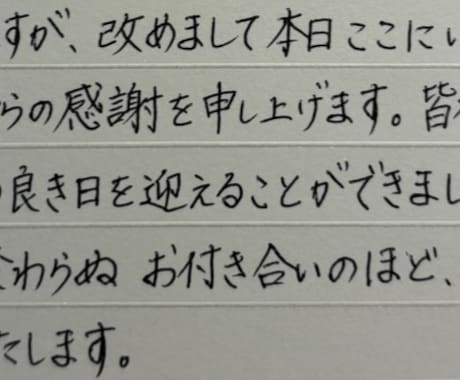 すが、改めまして本日ここにい
らの感謝を申し上げます。皆
良き日を迎えることができまし
わらぬ お付き合いのほど、
たします。